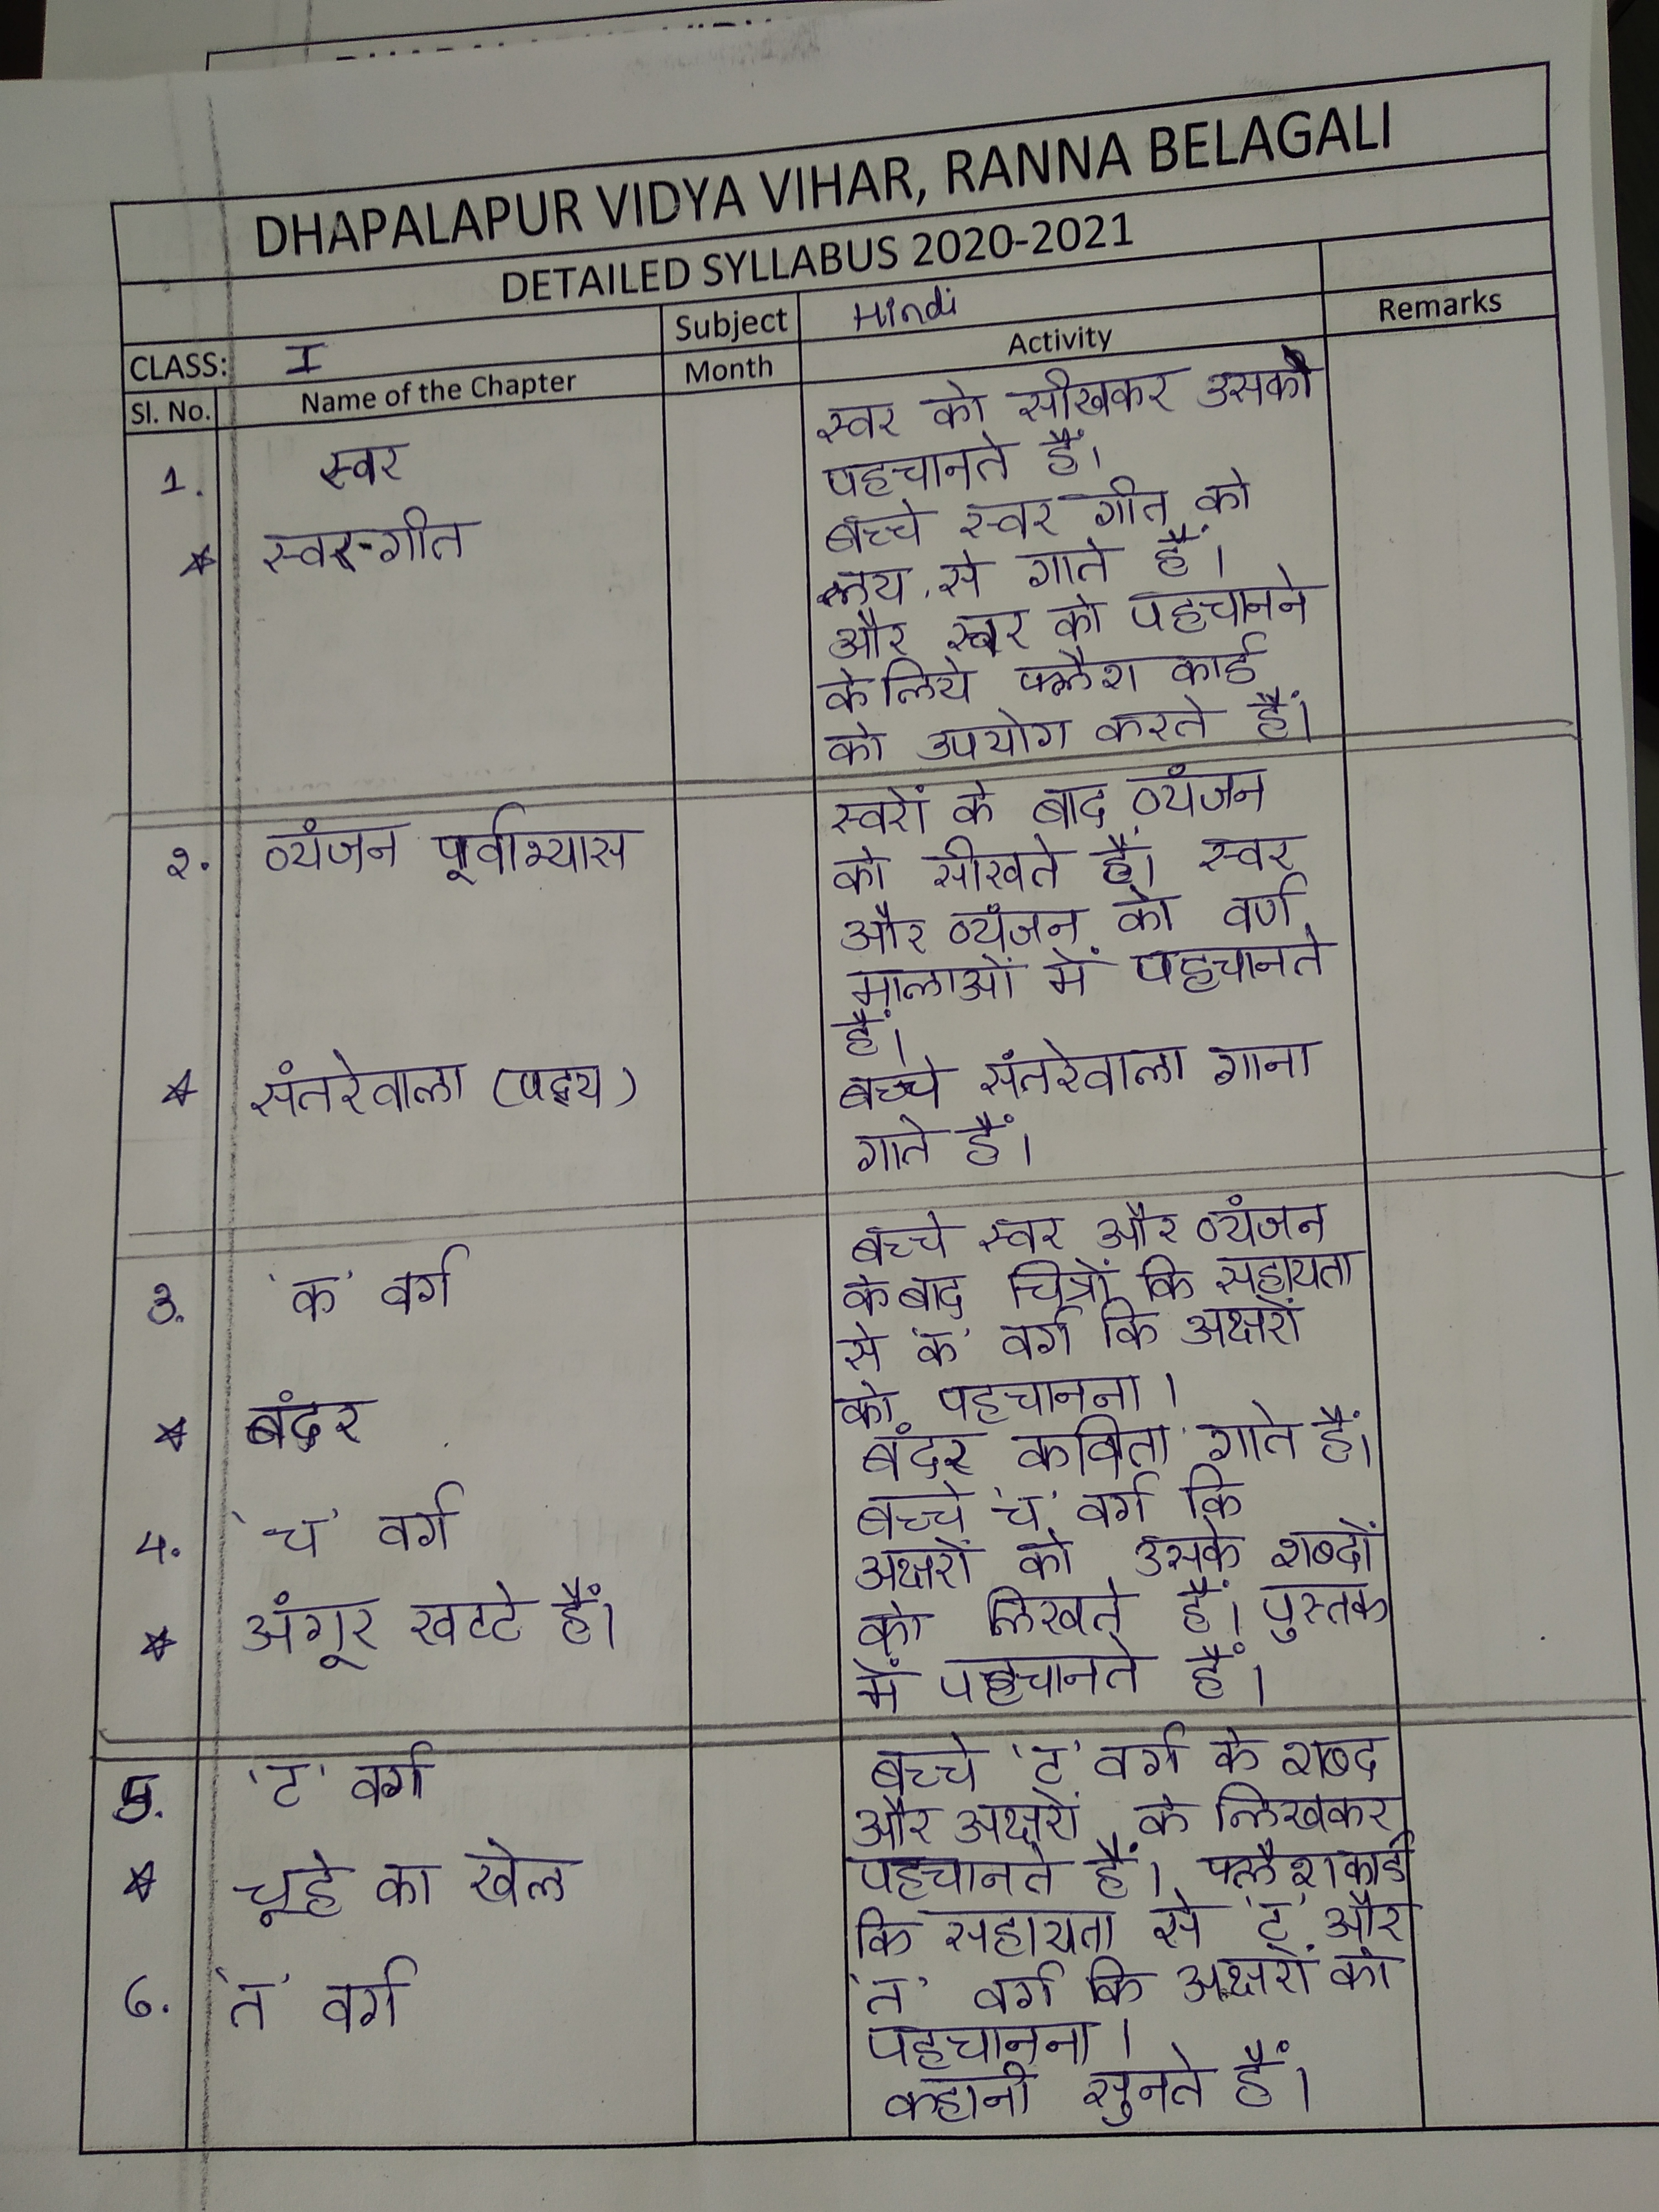 DHAPALAPUR VIDYA VIHAR, RANNA BELAGALI
DETAILED SYLLABUS 2020-2021
CLASS: I Subject Hindi
Sl. No. Name of the Chapter Month Activity Remarks
1. स्वर
स्वर को सीखकर उसको
पहचानते हैं।
★ स्वर-गीत
बच्चे स्वर गीत को
लय से गाते हैं।
और स्वर को पहचानने
के लिये फ्लैश कार्ड
को उपयोग करते हैं।
२. व्यंजन पूर्वाभ्यास
स्वरों के बाद व्यंजन
को सीखते हैं। स्वर
और व्यंजन को वर्ण
मालाओं में पहचानते
हैं।
★ संतरेवाला (पद्य)
बच्चे संतरेवाला गाना
गाते हैं।
3. 'क' वर्ग
बच्चे स्वर और व्यंजन
के बाद चित्रों कि सहायता
से 'क' वर्ग कि अक्षरों
को पहचानना।
★ बंदर
बंदर कविता गाते हैं।
4. 'च' वर्ग
बच्चे 'च' वर्ग कि
अक्षरों को उसके शब्दों
★ अंगूर खट्टे हैं।
को लिखते हैं। पुस्तक
में पहचानते हैं।
5. 'ट' वर्ग
बच्चे 'ट' वर्ग के शब्द
और अक्षरों के लिखकर
★ चूहे का खेल
पहचानते हैं। फ्लैशकार्ड
कि सहायता से 'ट' और
6. 'त' वर्ग
'त' वर्ग कि अक्षरों को
पहचानना।
कहानी सुनते हैं।